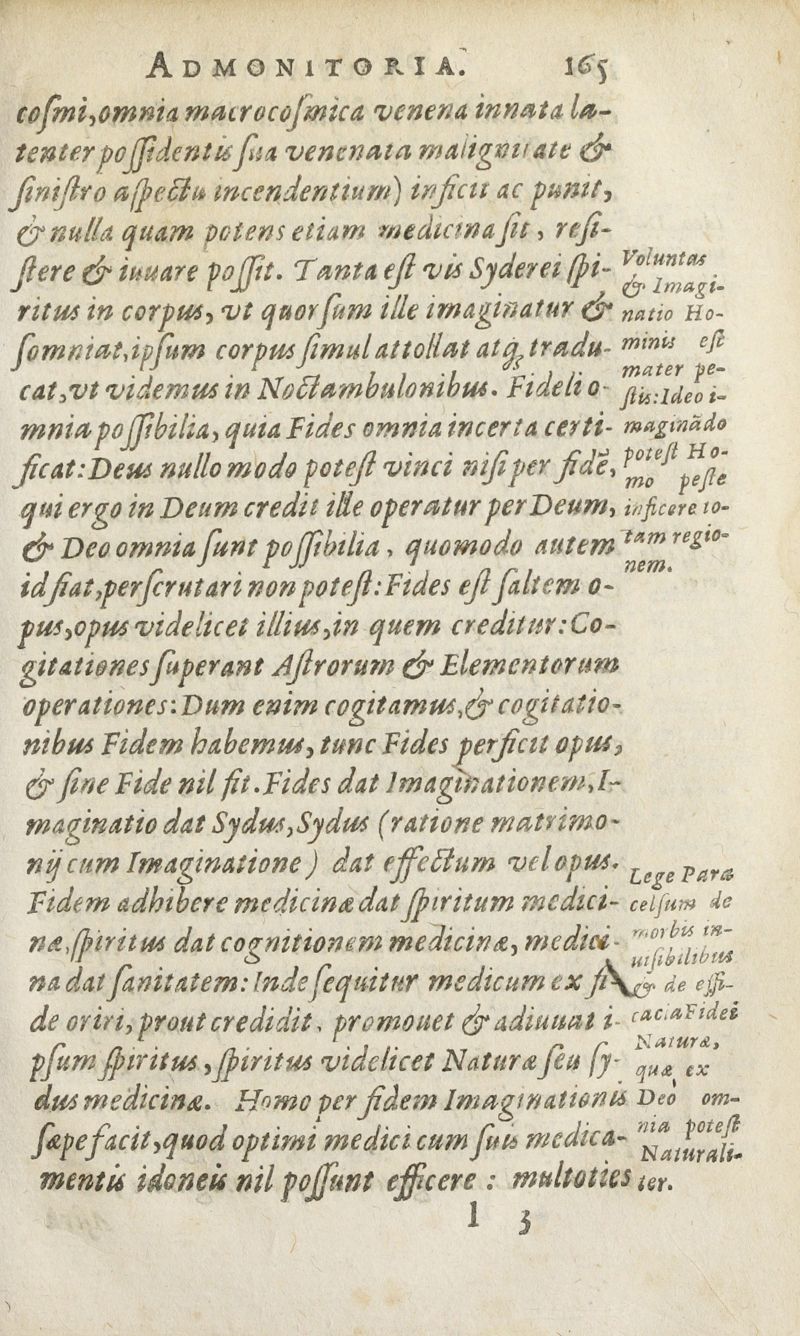 ADMONITORIA. 165
coſmi,omnia macrocoſmica venena innata la-
tenter poſſidentis ſua venenata malignitate &
ſiniſtro aſpectu incendentium) inficit ac punit,
& nulla quam potens etiam medicina ſit, reſi-
ſtere & iuuare poſſit. Tanta eſt vis Syderei ſpi-
ritus in corpus, vt quorſum ille imaginatur &
ſomniat,ipſum corpus ſimul attollat atq; tradu-
cat,vt videmus in Noctambulonibus. Fideli o-
mnia poſſibilia, quia Fides omnia incerta certi-
ficat: Deus nullo modo poteſt vinci niſi per fidē,
qui ergo in Deum credit ille operatur per Deum,
& Deo omnia ſunt poſſibilia, quomodo autem
id fiat,perſcrutari non poteſt: Fides eſt ſaltem o-
pus,opus videlicet illius,in quem creditur: Co-
gitationes ſuperant Aſtrorum & Elementorum
operationes: Dum enim cogitamus,& cogitatio-
nibus Fidem habemus, tunc Fides perficit opus,
& ſine Fide nil fit. Fides dat Imaginationem, I-
maginatio dat Sydus,Sydus (ratione matrimo-
nij cum Imaginatione) dat effectum vel opus.
Fidem adhibere medicinæ dat ſpiritum medici-
næ,ſpiritus dat cognitionem medicinæ, medici-
na dat ſanitatem: Inde ſequitur medicum ex fi-
de oriri, prout credidit, promouet & adiuuat i-
pſum ſpiritus, ſpiritus videlicet Naturæ ſeu ſy-
dus medicinæ. Homo per fidem Imaginationis
ſæpe facit,quod optimi medici cum ſuis medica-
mentis idoneis nil poſſunt efficere: multoties
l 3
Voluntas
& Imagi-
natio Ho-
minis eſt
mater pe-
ſtis: Ideo i-
maginādo
poteſt Ho-
mo peſte
inficere to-
tam regio-
nem.
Lege Para
celſum de
morbis in-
uiſibilibus
& de effi-
cacia Fidei
Naturæ,
quæ ex
Deo om-
nia poteſt
Naturali-
ter.